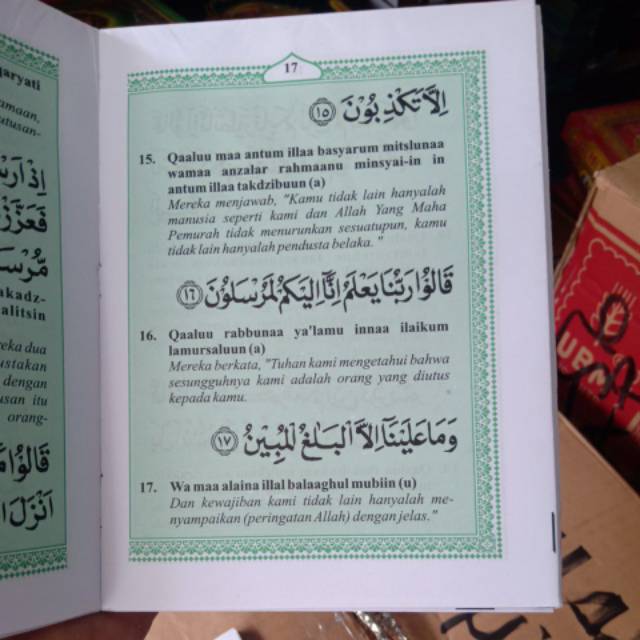 aryati
amaan,
utusan-
akadz-
alitsin
reka dua
ustakan
dengan
usan itu
orang
17
اِلَّا تَكْذِبُوْنَ ١٥
15. Qaaluu maa antum illaa basyarum mitslunaa
wamaa anzalar rahmaanu minsyai-in in
antum illaa takdzibuun (a)
Mereka menjawab, "Kamu tidak lain hanyalah
manusia seperti kami dan Allah Yang Maha
Pemurah tidak menurunkan sesuatupun, kamu
tidak lain hanyalah pendusta belaka."
قَالُوْا رَبُّنَا يَعْلَمُ اِنَّآ اِلَيْكُمْ لَمُرْسَلُوْنَ ١٦
16. Qaaluu rabbunaa ya'lamu innaa ilaikum
lamursaluun (a)
Mereka berkata, "Tuhan kami mengetahui bahwa
sesungguhnya kami adalah orang yang diutus
kepada kamu.
وَمَا عَلَيْنَآ اِلَّا الْبَلٰغُ الْمُبِيْنُ ١٧
17. Wa maa alaina illal balaaghul mubiin (u)
Dan kewajiban kami tidak lain hanyalah me-
nyampaikan (peringatan Allah) dengan jelas."